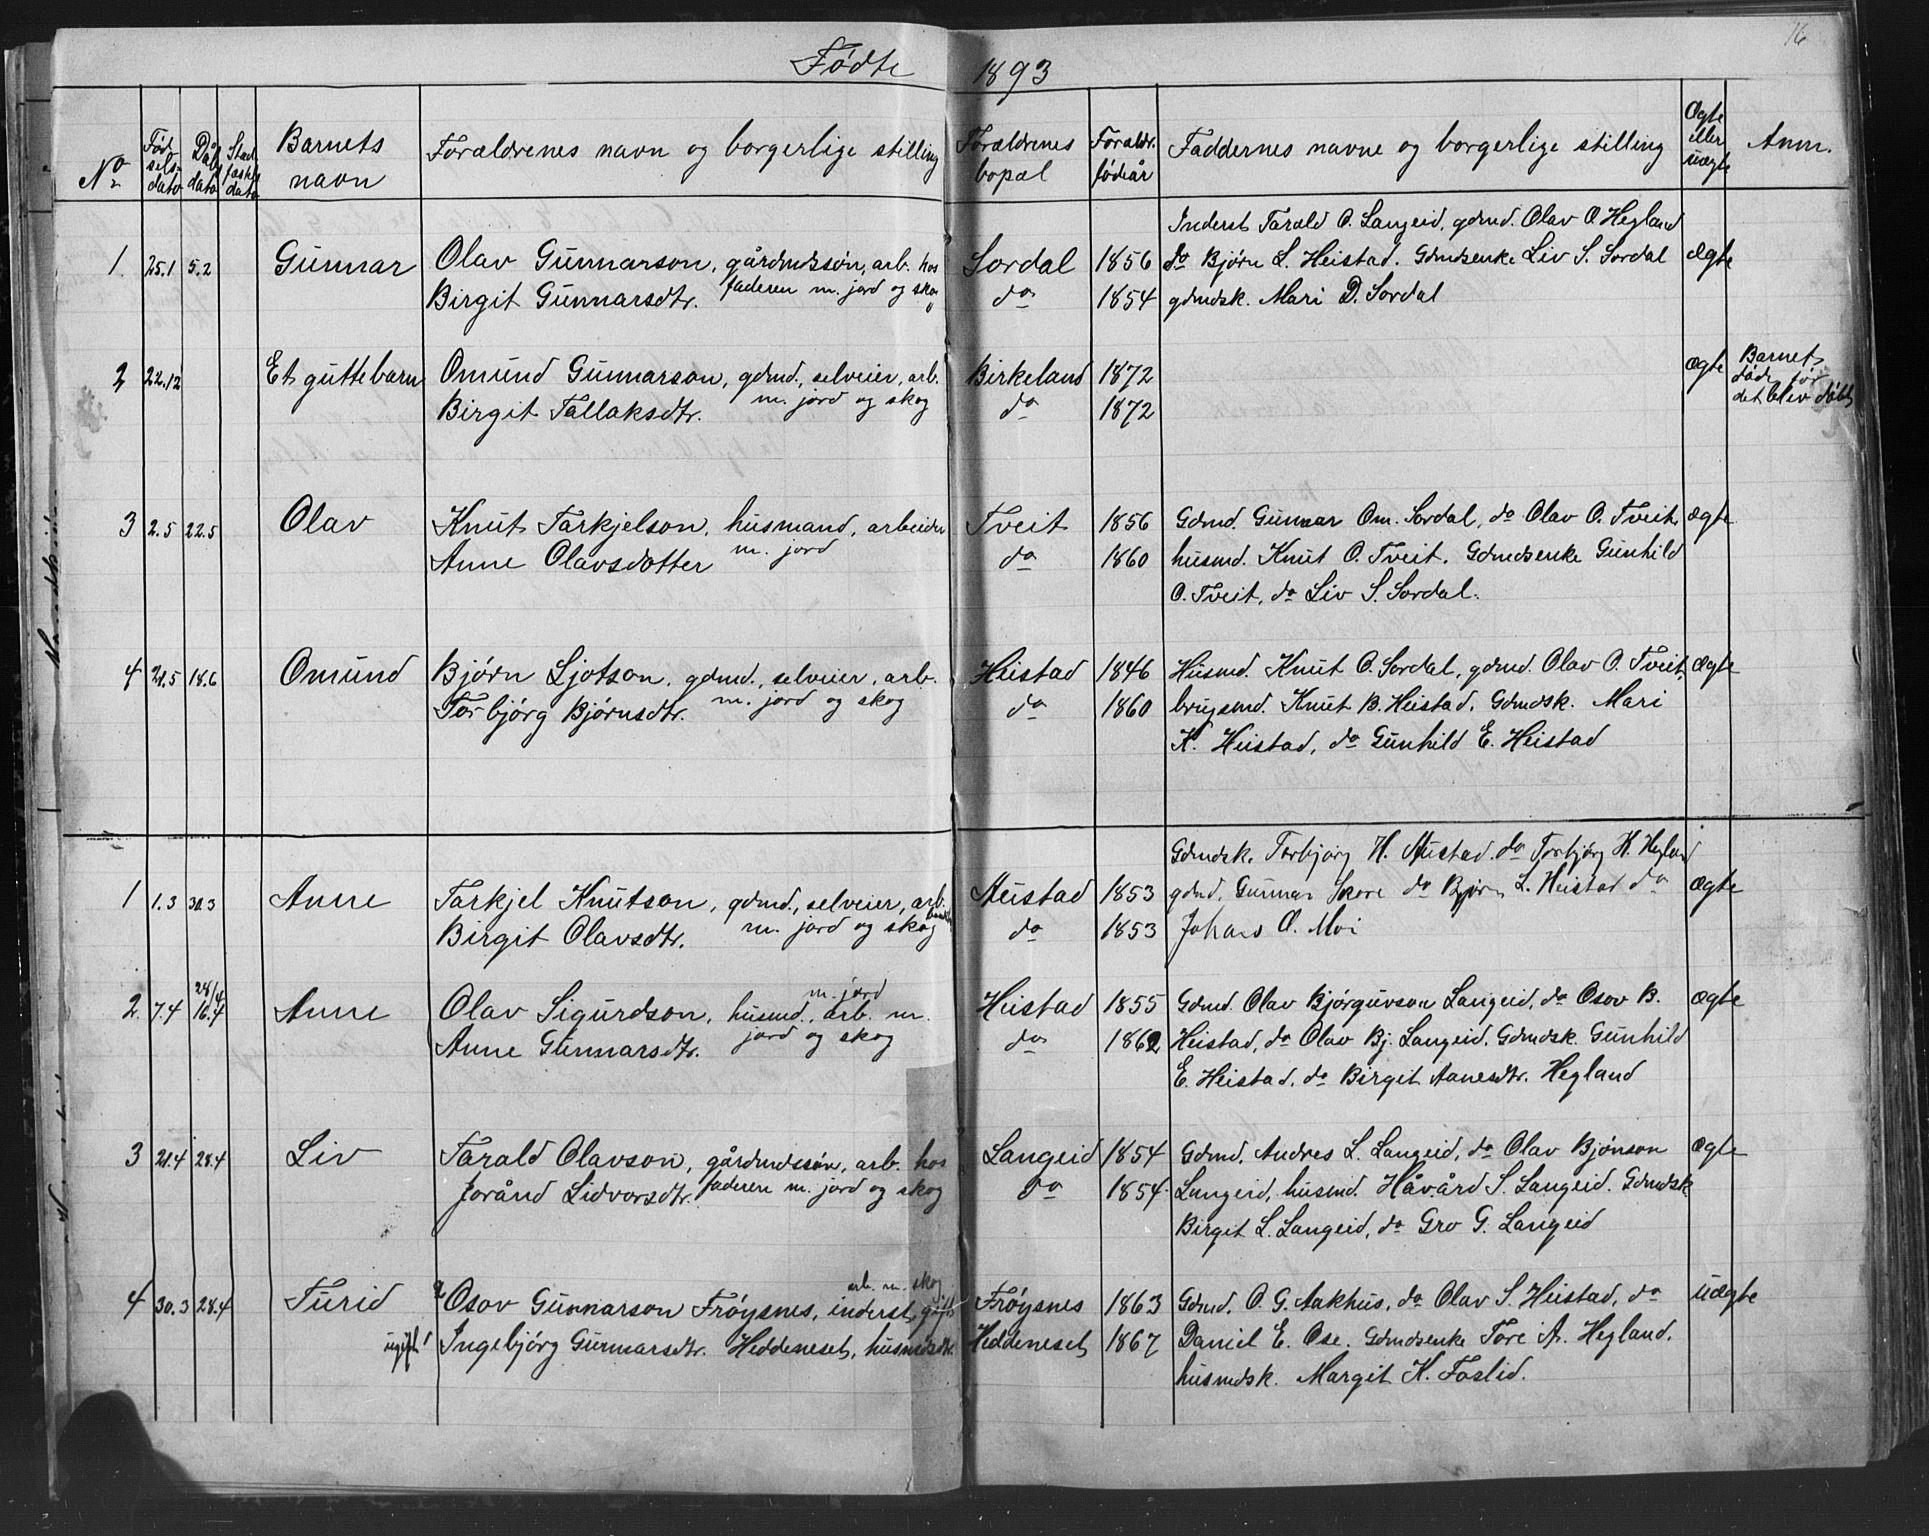 16
Fødte 1893
No
Fødselsdato
Dåbsdato
Barnets navn
Forældrenes navn og borgerlige stilling
Forældrenes bopæl
Forældr. fødeår
Faddernes navne og borgerlige stilling
Ægte eller uægte
Anm.
Inderst Tarald O. Langeid, gdmd. Olav O Hegland
1. 25.1 5.2 Gunnar Olav Gunnarson, gårdmdssøn, arb. hos Sordal 1856 do Bjørn L. Heistad. Gdmdsenke Liv S. Sordal ægte
Birgit Gunnarsdtr. faderen m. jord og skog do 1854 gdmdsk. Mari D. Sordal
2 22.12 Et guttebarn Omund Gunnarson, gdmd., selveier, arb. Birkeland 1872 ægte Barnet døde før det blev døbt
Birgit Tallaksdtr. m. jord og skog do 1872
3 2.5 22.5 Olav Knut Tarkjelson, husmand, arbeider Tveit 1856 Gdmd. Gunnar Om. Sordal, do Olav O. Tveit, ægte
Anne Olavsdotter m. jord do 1860 husmd. Knut O. Tveit. Gdmdsenke Gunhild
O. Tveit, do Liv S. Sordal.
4 21.5 18.6 Omund Bjørn Ljotson, gdmd., selveier, arb. Heistad 1846 Husmd. Knut O. Sordal, gdmd. Olav O. Tveit, ægte
Torbjørg Bjørnsdtr. m. jord og skog do 1860 brugsmd. Knut B. Heistad. Gdmdsk. Mari
K. Heistad, do Gunhild E. Heistad
Gdmdsk. Torbjørg H. Heistad. do Torbjørg K. Hegland
1 1.3 30.3 Anne Tarkjel Knutson, gdmd., selveier, arb. Heistad 1853 gdmd. Gunnar Skore do Bjørn L. Heistad do ægte
Birgit Olavsdtr. m. jord og skog do 1853 Johans O. Moi
28/4 m. jord
2. 7.4 16.4 Anne Olav Sigurdson, husmd., arb. m. Heistad 1855 Gdmd. Olav Bjørguvson Langeid, do Osov B. ægte
Anne Gunnarsdtr. jord og skog do 1862 Heistad, do Olav Bj. Langeid. Gdmdsk. Gunhild
E. Heistad, do Birgit Aanesdtr. Hegland
3 21.4 28.4 Liv Tarald Olavson, gårdmdssøn, arb. hos Langeid 1854 Gdmd. Andres L. Langeid, do Olav Bjønson ægte
Jorånd Lidvorsdtr. faderen m. jord og skog do 1854. Langeid, husmd. Håvård S. Langeid. Gdmdsk.
Birgit L. Langeid, do Gro G. Langeid
arb. m. skog
4 30.3 28.4 Turid Osov Gunnarson Frøysnes, inderst, gift Frøysnes 1863 Gdmd. O. G. Aakhus, do Olav S. Heistad, do uægte
ugift Ingebjørg Gunnarsdtr. Heddeneset, husmdsdtr. Heddeneset 1867 Daniel E. Ose. Gdmdsenke Tore A. Hegland.
husmdsk. Margit K. Foslid.